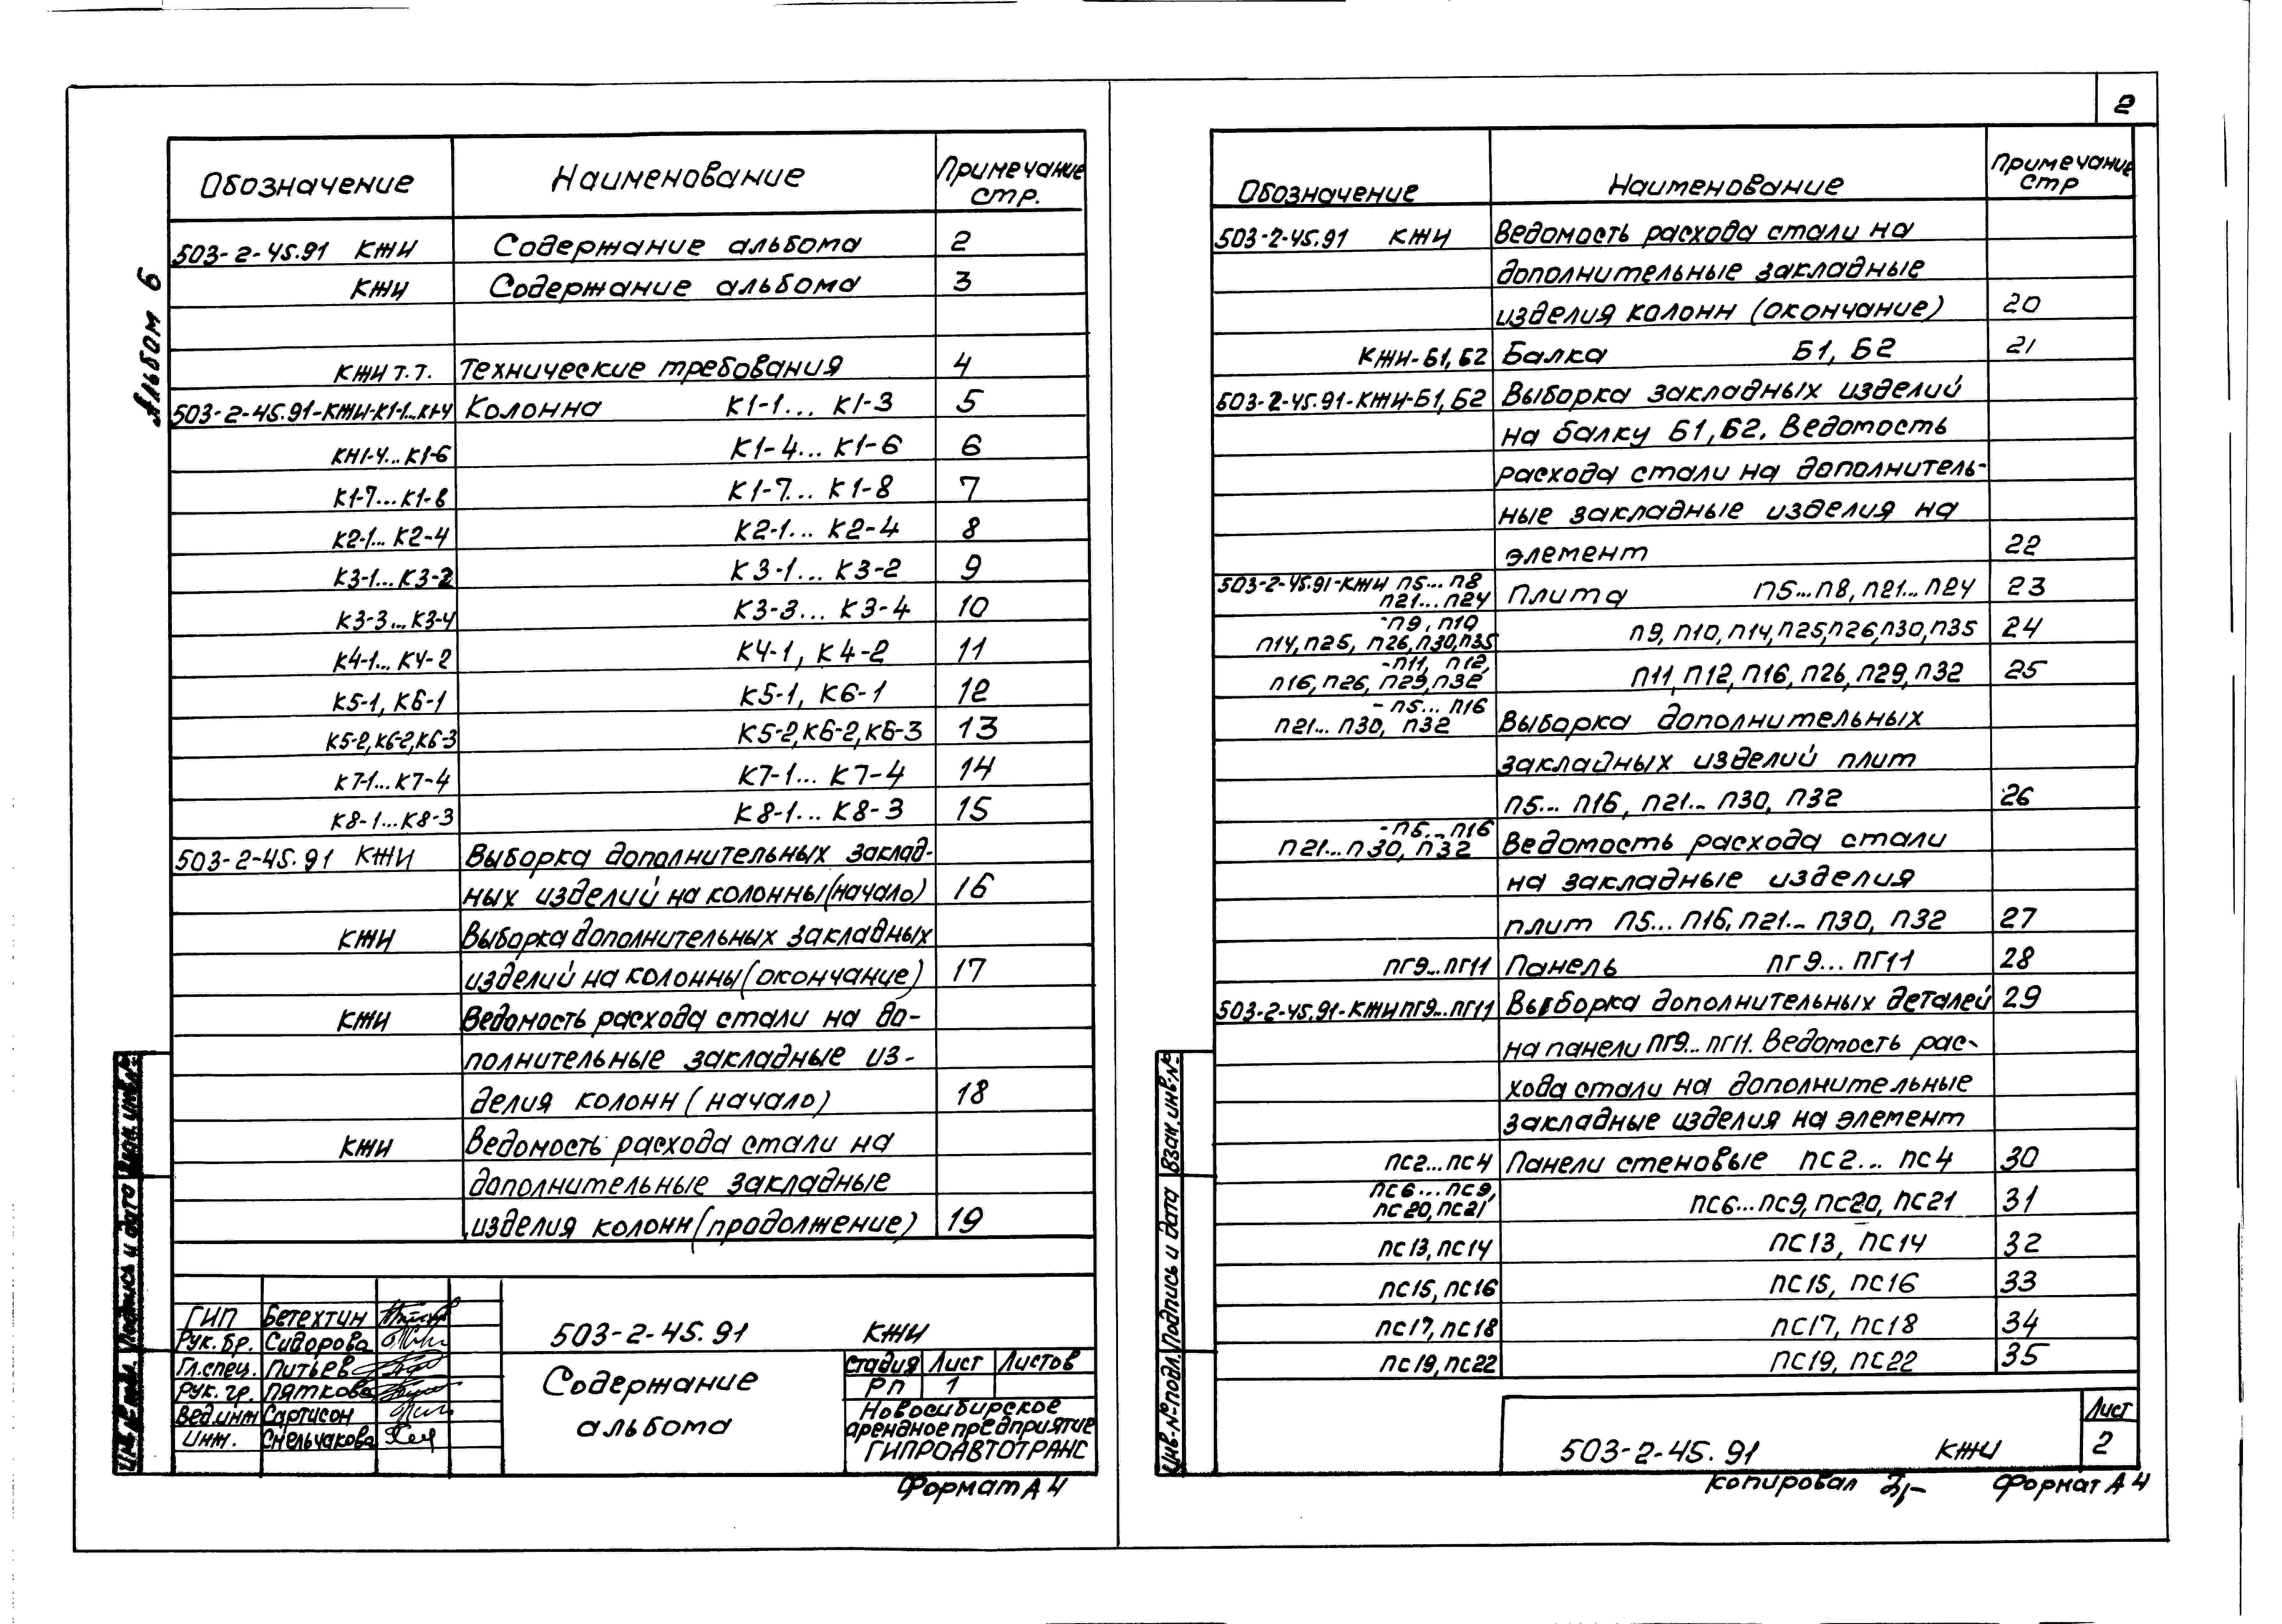 2
Альбом 6
Обозначение Наименование Примечание стр.
503-2-45.91 КЖИ Содержание альбома 2
КЖИ Содержание альбома 3
КЖИ Т.Т. Технические требования 4
503-2-45.91-КЖИ-К1-1...К1-4 Колонна К1-1... К1-3 5
КН1-4...К1-6 К1-4... К1-6 6
К1-7...К1-8 К1-7... К1-8 7
К2-1... К2-4 К2-1... К2-4 8
К3-1...К3-2 К3-1... К3-2 9
К3-3...К3-4 К3-3... К3-4 10
К4-1... К4-2 К4-1, К4-2 11
К5-1, К6-1 К5-1, К6-1 12
К5-2,К6-2,К6-3 К5-2,К6-2,К6-3 13
К7-1...К7-4 К7-1... К7-4 14
К8-1...К8-3 К8-1... К8-3 15
503-2-45.91 КЖИ Выборка дополнительных заклад-
ных изделий на колонны(начало) 16
КЖИ Выборка дополнительных закладных
изделий на колонны(окончание) 17
КЖИ Ведомость расхода стали на до-
полнительные закладные из-
делия колонн (начало) 18
КЖИ Ведомость расхода стали на
дополнительные закладные
изделия колонн(продолжение) 19
ГИП Бетехтин
Рук.бр. Сидорова
Гл.спец. Питьев
Рук.гр. Пяткова
Вед.инж Сартисон
Инж. Смельчакова
503-2-45.91 КЖИ
Содержание
альбома
Стадия Лист Листов
РП 1
Новосибирское
арендное предприятие
ГИПРОАВТОТРАНС
Формат А4
Подпись и дата
Обозначение Наименование Примечание стр
503-2-45.91 КЖИ Ведомость расхода стали на
дополнительные закладные
изделия колонн (окончание) 20
КЖИ-Б1,Б2 Балка Б1, Б2 21
503-2-45.91-КЖИ-Б1,Б2 Выборка закладных изделий
на балку Б1,Б2. Ведомость
расхода стали на дополнитель-
ные закладные изделия на
элемент 22
503-2-45.91-КЖИ П5... П8
П21...П24 Плита П5...П8, П21... П24 23
-П9, П10
П14,П25, П26,П30,П35 П9, П10, П14,П25,П26,П30,П35 24
-П11, П12,
П16,П26, П29,П32 П11,П12,П16,П26,П29,П32 25
-П5... П16
П21... П30, П32 Выборка дополнительных
закладных изделий плит
П5... П16, П21... П30, П32 26
-П5... П16
П21...П30, П32 Ведомость расхода стали
на закладные изделия
плит П5... П16, П21... П30, П32 27
ПГ9...ПГ11 Панель ПГ9... ПГ11 28
503-2-45.91-КЖИПГ9...ПГ11 Выборка дополнительных деталей 29
на панели ПГ9...ПГ11. Ведомость рас-
хода стали на дополнительные
закладные изделия на элемент
ПС2...ПС4 Панели стеновые ПС2... ПС4 30
ПС6...ПС9,
ПС20,ПС21 ПС6...ПС9, ПС20, ПС21 31
ПС13, ПС14 ПС13, ПС14 32
ПС15, ПС16 ПС15, ПС16 33
ПС17, ПС18 ПС17, ПС18 34
ПС19, ПС22 ПС19, ПС22 35
503-2-45.91 КЖИ
Лист
2
Копировал
Формат А4
Инв.№подл. Подпись и дата Взам.инв.№